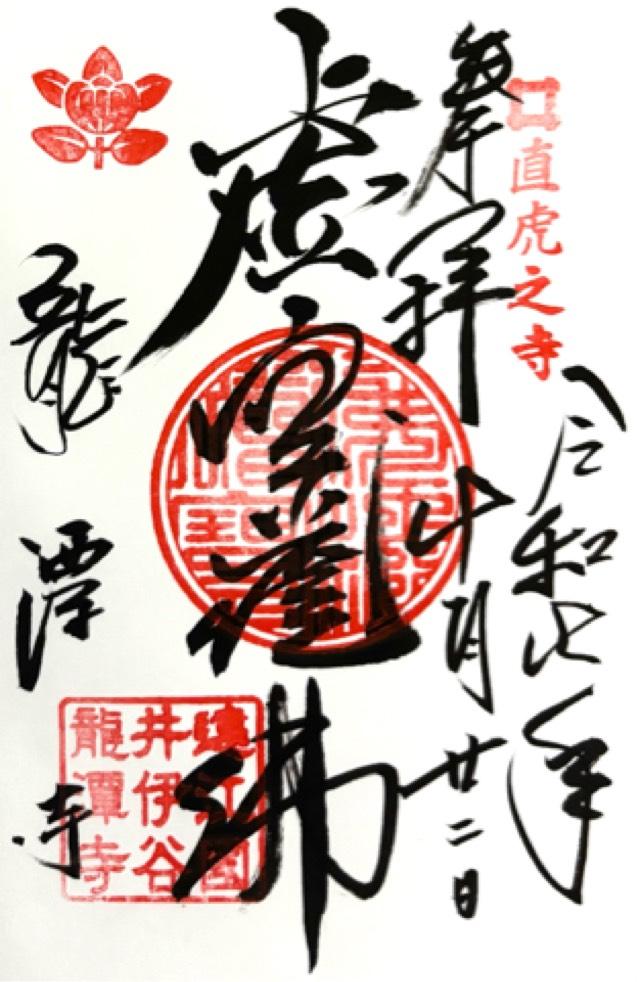 直虎之寺
令和七年
奉拝
十月廿二日
虚空蔵佛
龍潭寺
遠江国
井伊谷
龍潭寺